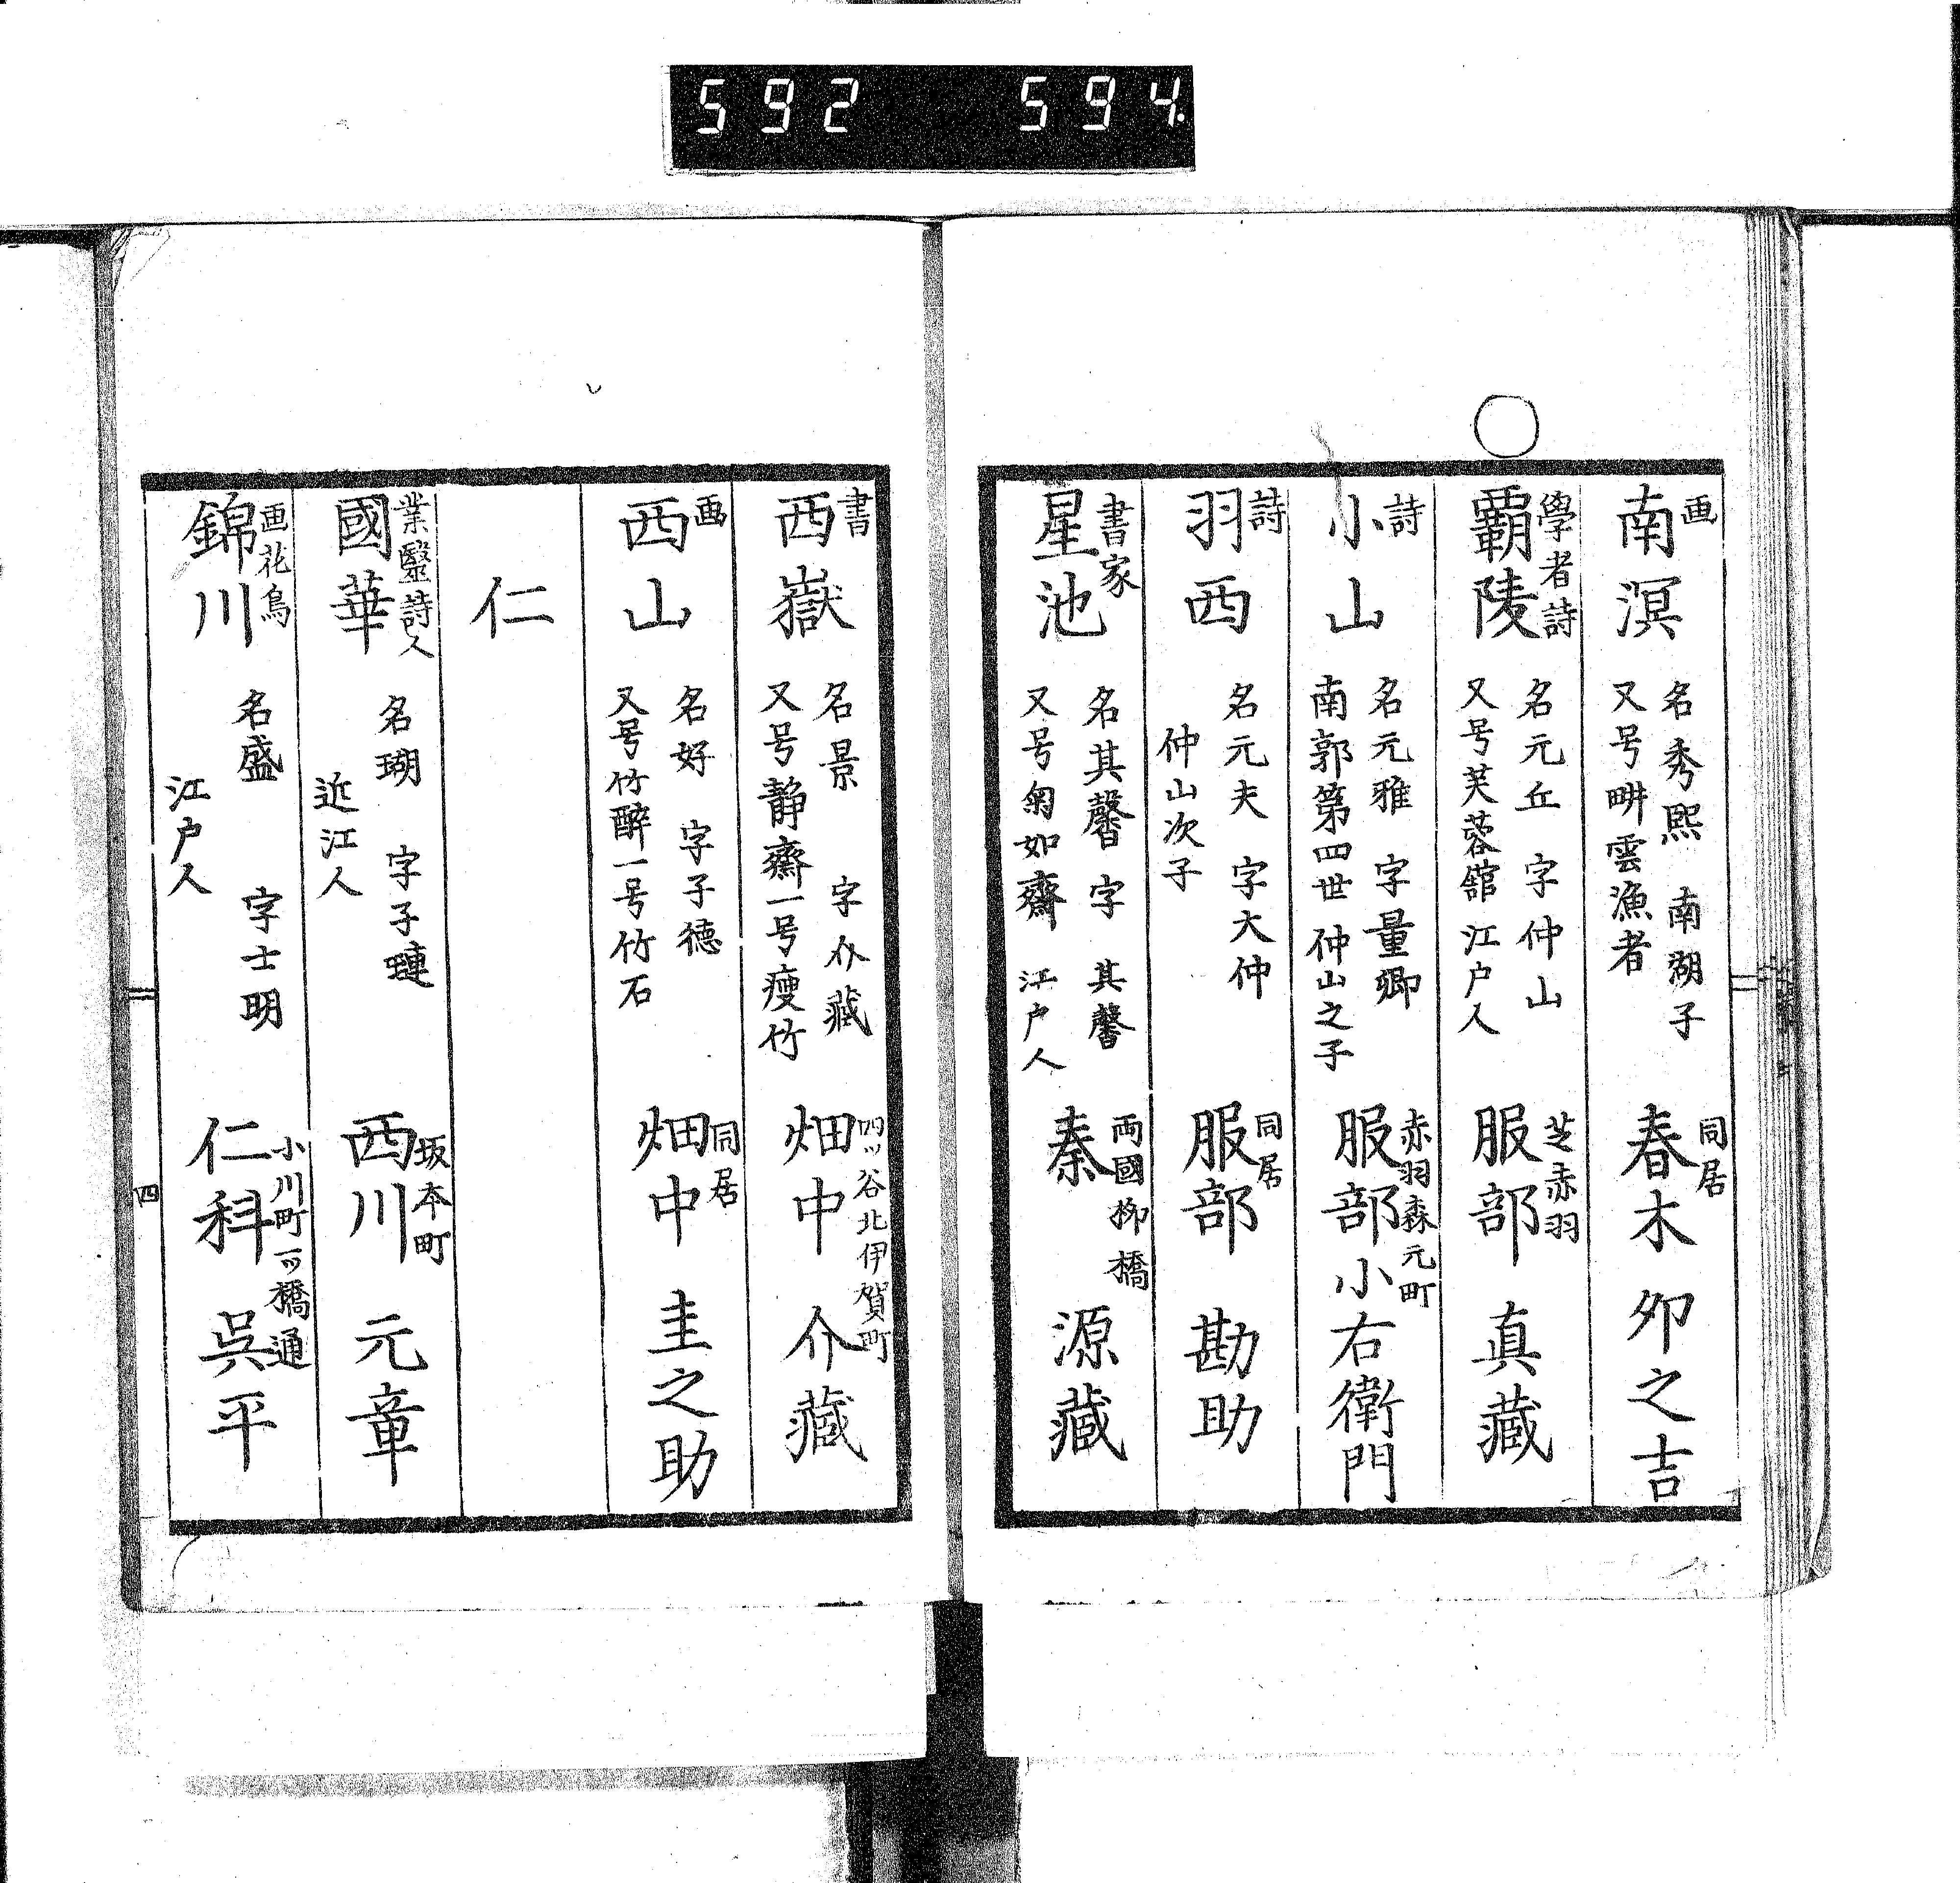 592 594.
画
南溟
名秀熙 南湖子
又号畊雲漁者
同居
春木卯之吉
學者詩
覇陵
名元丘 字仲山
又号芙蓉舘 江戸人
芝赤羽
服部真藏
詩
小山
名元雅 字量卿
南郭第四世 仲山之子
赤羽森元町
服部小右衛門
詩
羽西
名元夫 字大仲
仲山次子
同居
服部勘助
書家
星池
名其馨 字其馨
又号匊如齋 江戸人
両國柳橋
秦源藏
書
西嶽
名景 字介藏
又号静齋一号痩竹
四ッ谷北伊賀町
畑中介藏
画
西山
名好 字子徳
又号竹醉一号竹石
同居
畑中圭之助
仁
業醫詩人
國華
名瑚 字子璉
近江人
坂本町
西川元章
画花鳥
錦川
名盛 字士明
江戸人
小川町一ッ橋通
仁科呉平
四